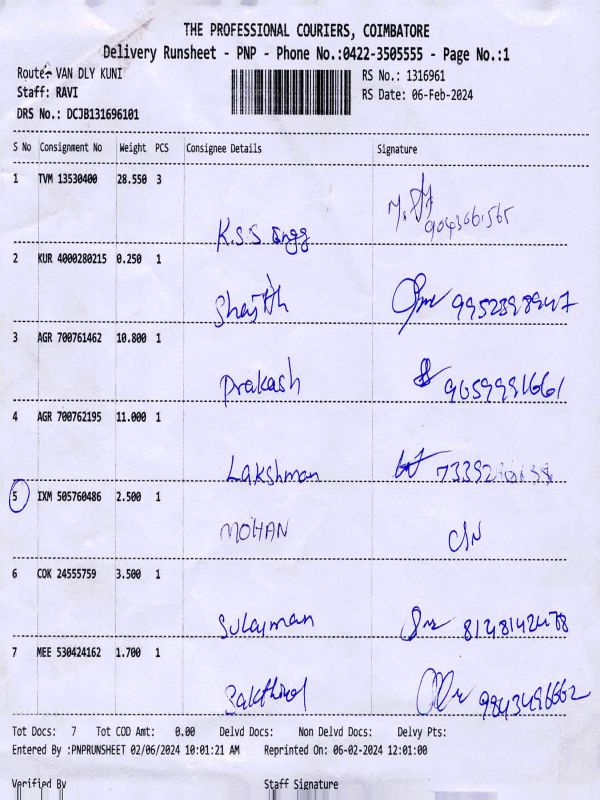 THE PROFESSIONAL COURIERS, COIMBATORE
Delivery Runsheet - PNP - Phone No.:0422-3505555 - Page No.:1
Route- VAN DLY KUNI RS No.: 1316961
Staff: RAVI RS Date: 06-Feb-2024
DRS No.: DCJB131696101
S No Consignment No Weight PCS Consignee Details Signature
1 TVM 13530400 28.550 3
K.S.S. Engg 9043661565
2 KUR 4000280215 0.250 1
9952898947
3 AGR 700761462 10.800 1
Prakash 9659991661
4 AGR 700762195 11.000 1
Lakshman
5 IXM 505760486 2.500 1
MOHAN
6 COK 24555759 3.500 1
Sulaiman 8148142478
7 MEE 530424162 1.700 1
9843496662
Tot Docs: 7 Tot COD Amt: 0.00 Delvd Docs: Non Delvd Docs: Delvy Pts:
Entered By :PNPRUNSHEET 02/06/2024 10:01:21 AM Reprinted On: 06-02-2024 12:01:00
Verified By Staff Signature